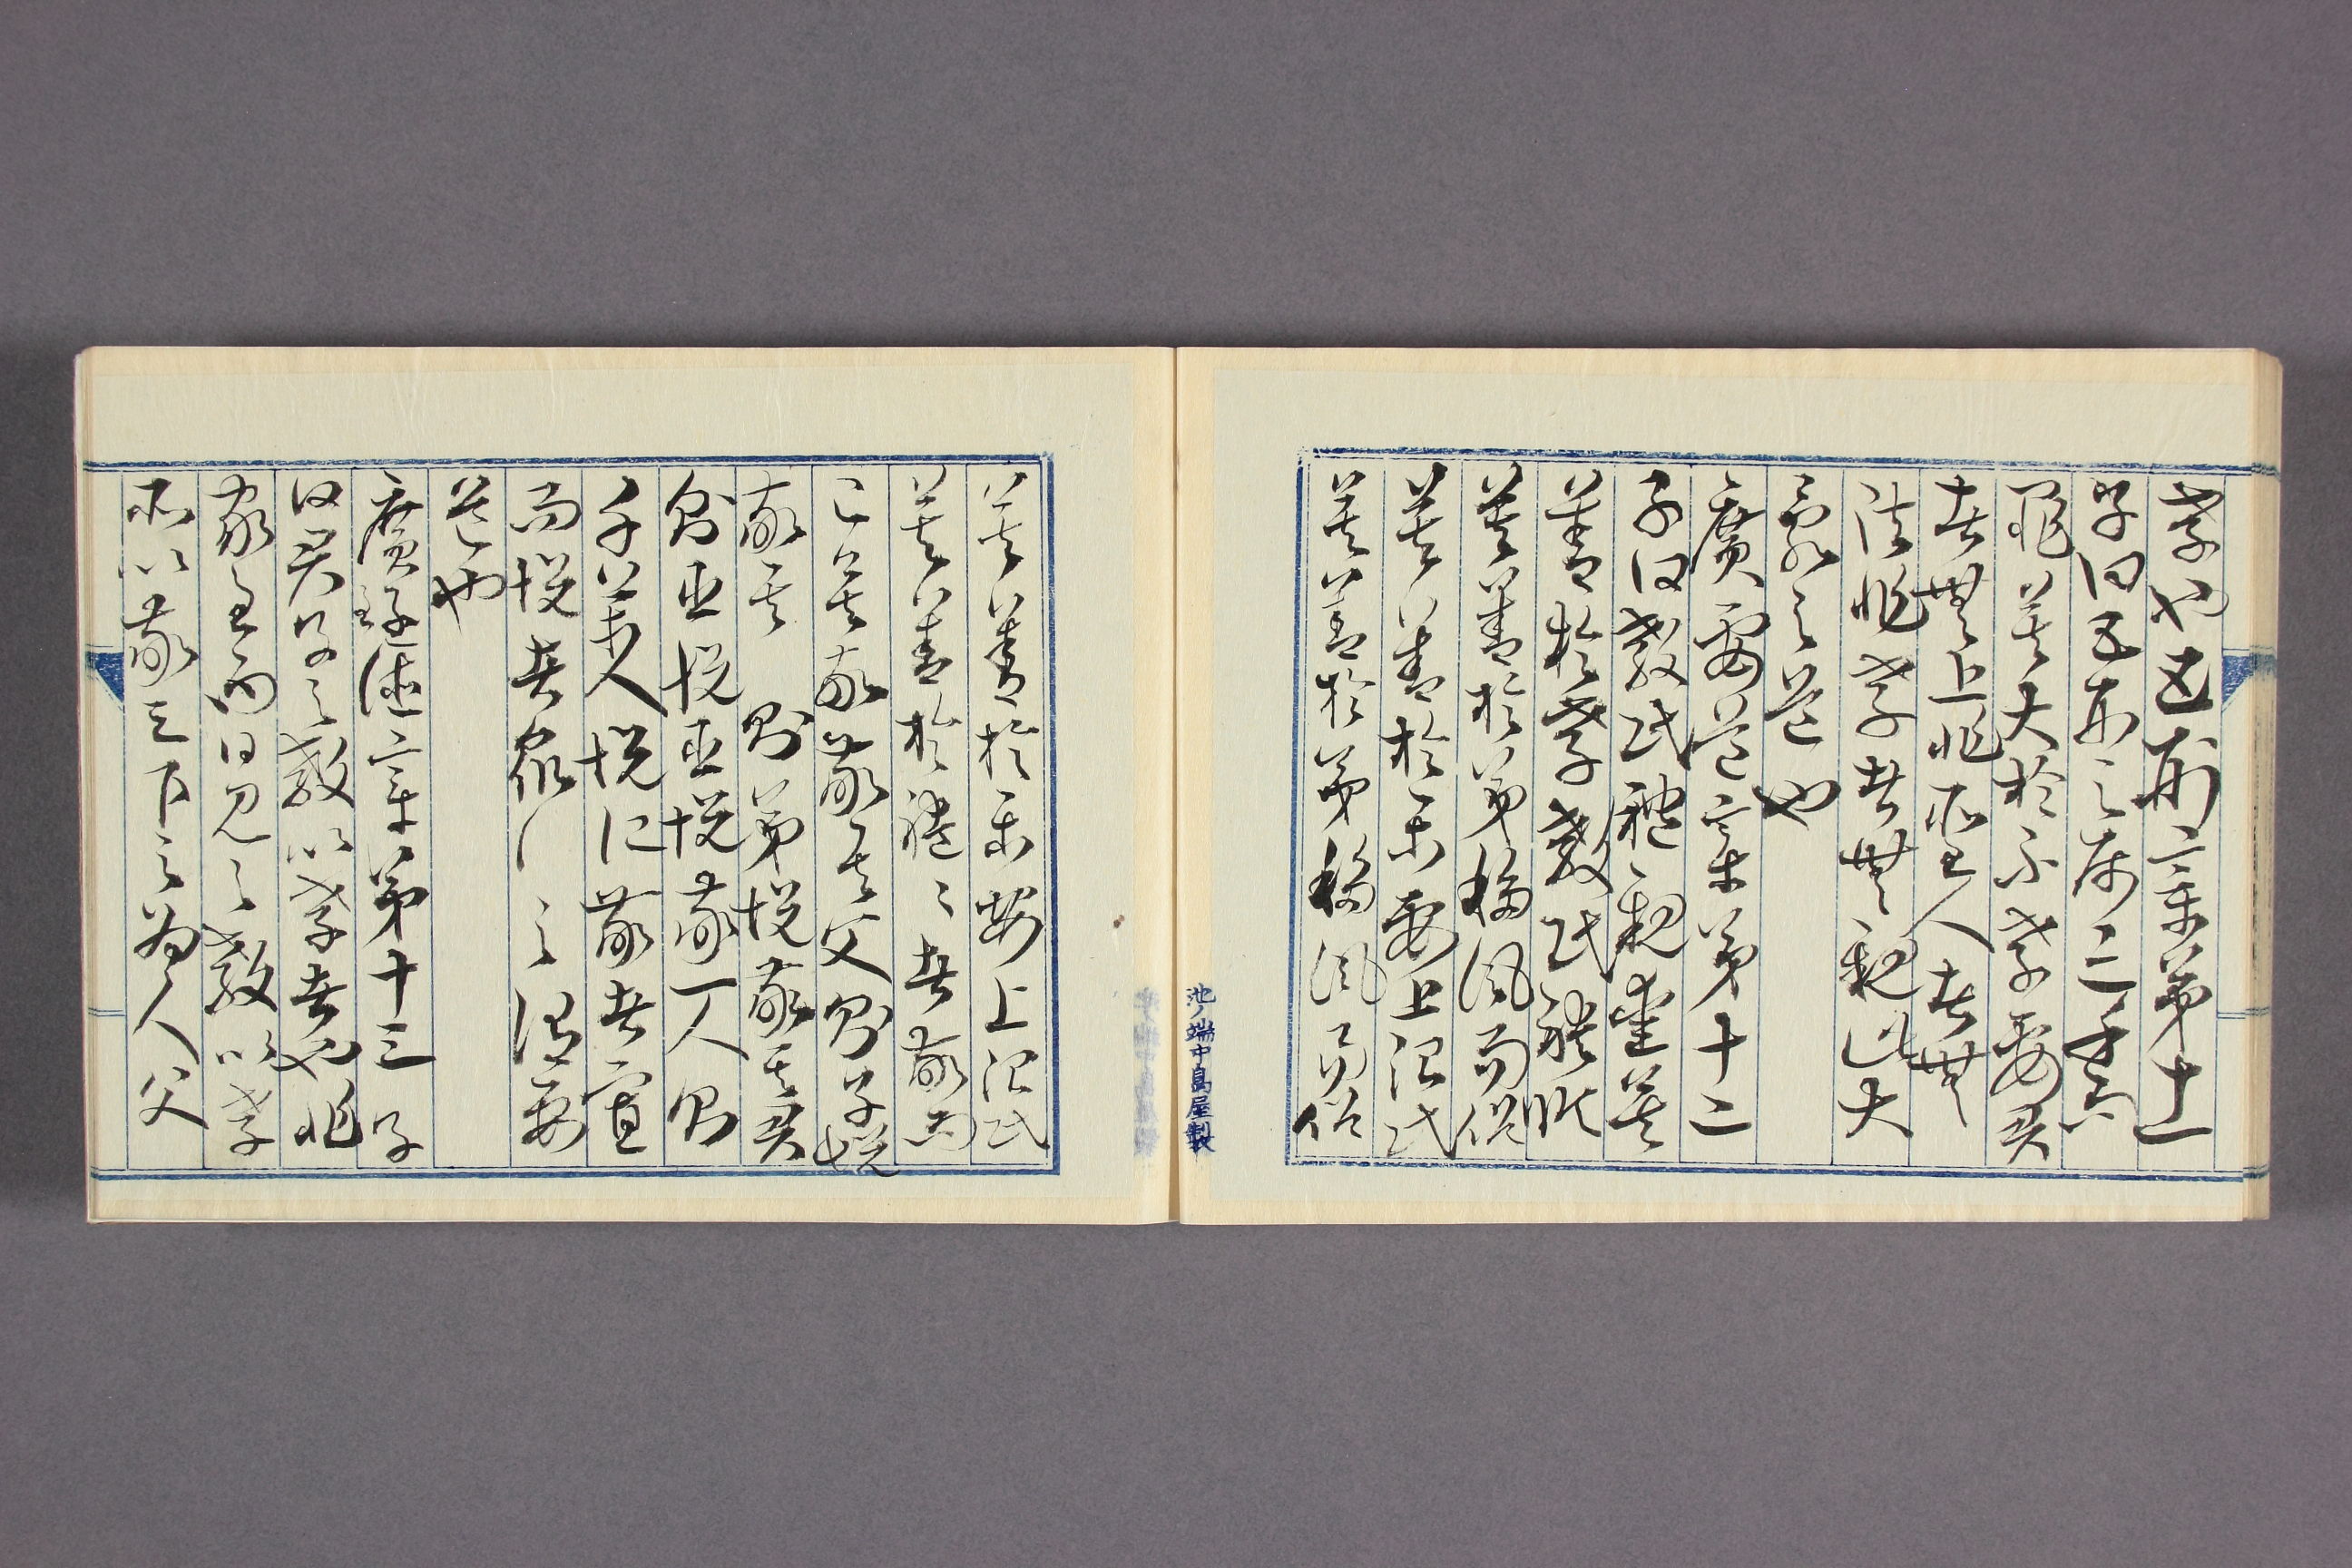 孝也五刑章第十一
子曰五刑之属三千而
罪莫大於不孝要君
者無上非聖人者無
法非孝者無親此大
亂之道也
廣要道章第十二
子曰教民禮親愛莫
善於孝教民禮順
莫善於弟移風而俗
莫善於樂安上治民
莫善於弟移風易俗
池ノ端中島屋製
莫善於樂安上治民
莫善於禮〻者敬而
已矣故敬其父則子悦
敬其 則弟悦敬其君
則臣悦臣悦敬一人則
千萬人悦所敬者寡
而悦者衆此之謂要
道也
廣至德章第十三 子
曰君子之教以孝者也非
家至而日見之教以孝
所以敬天下之為人父